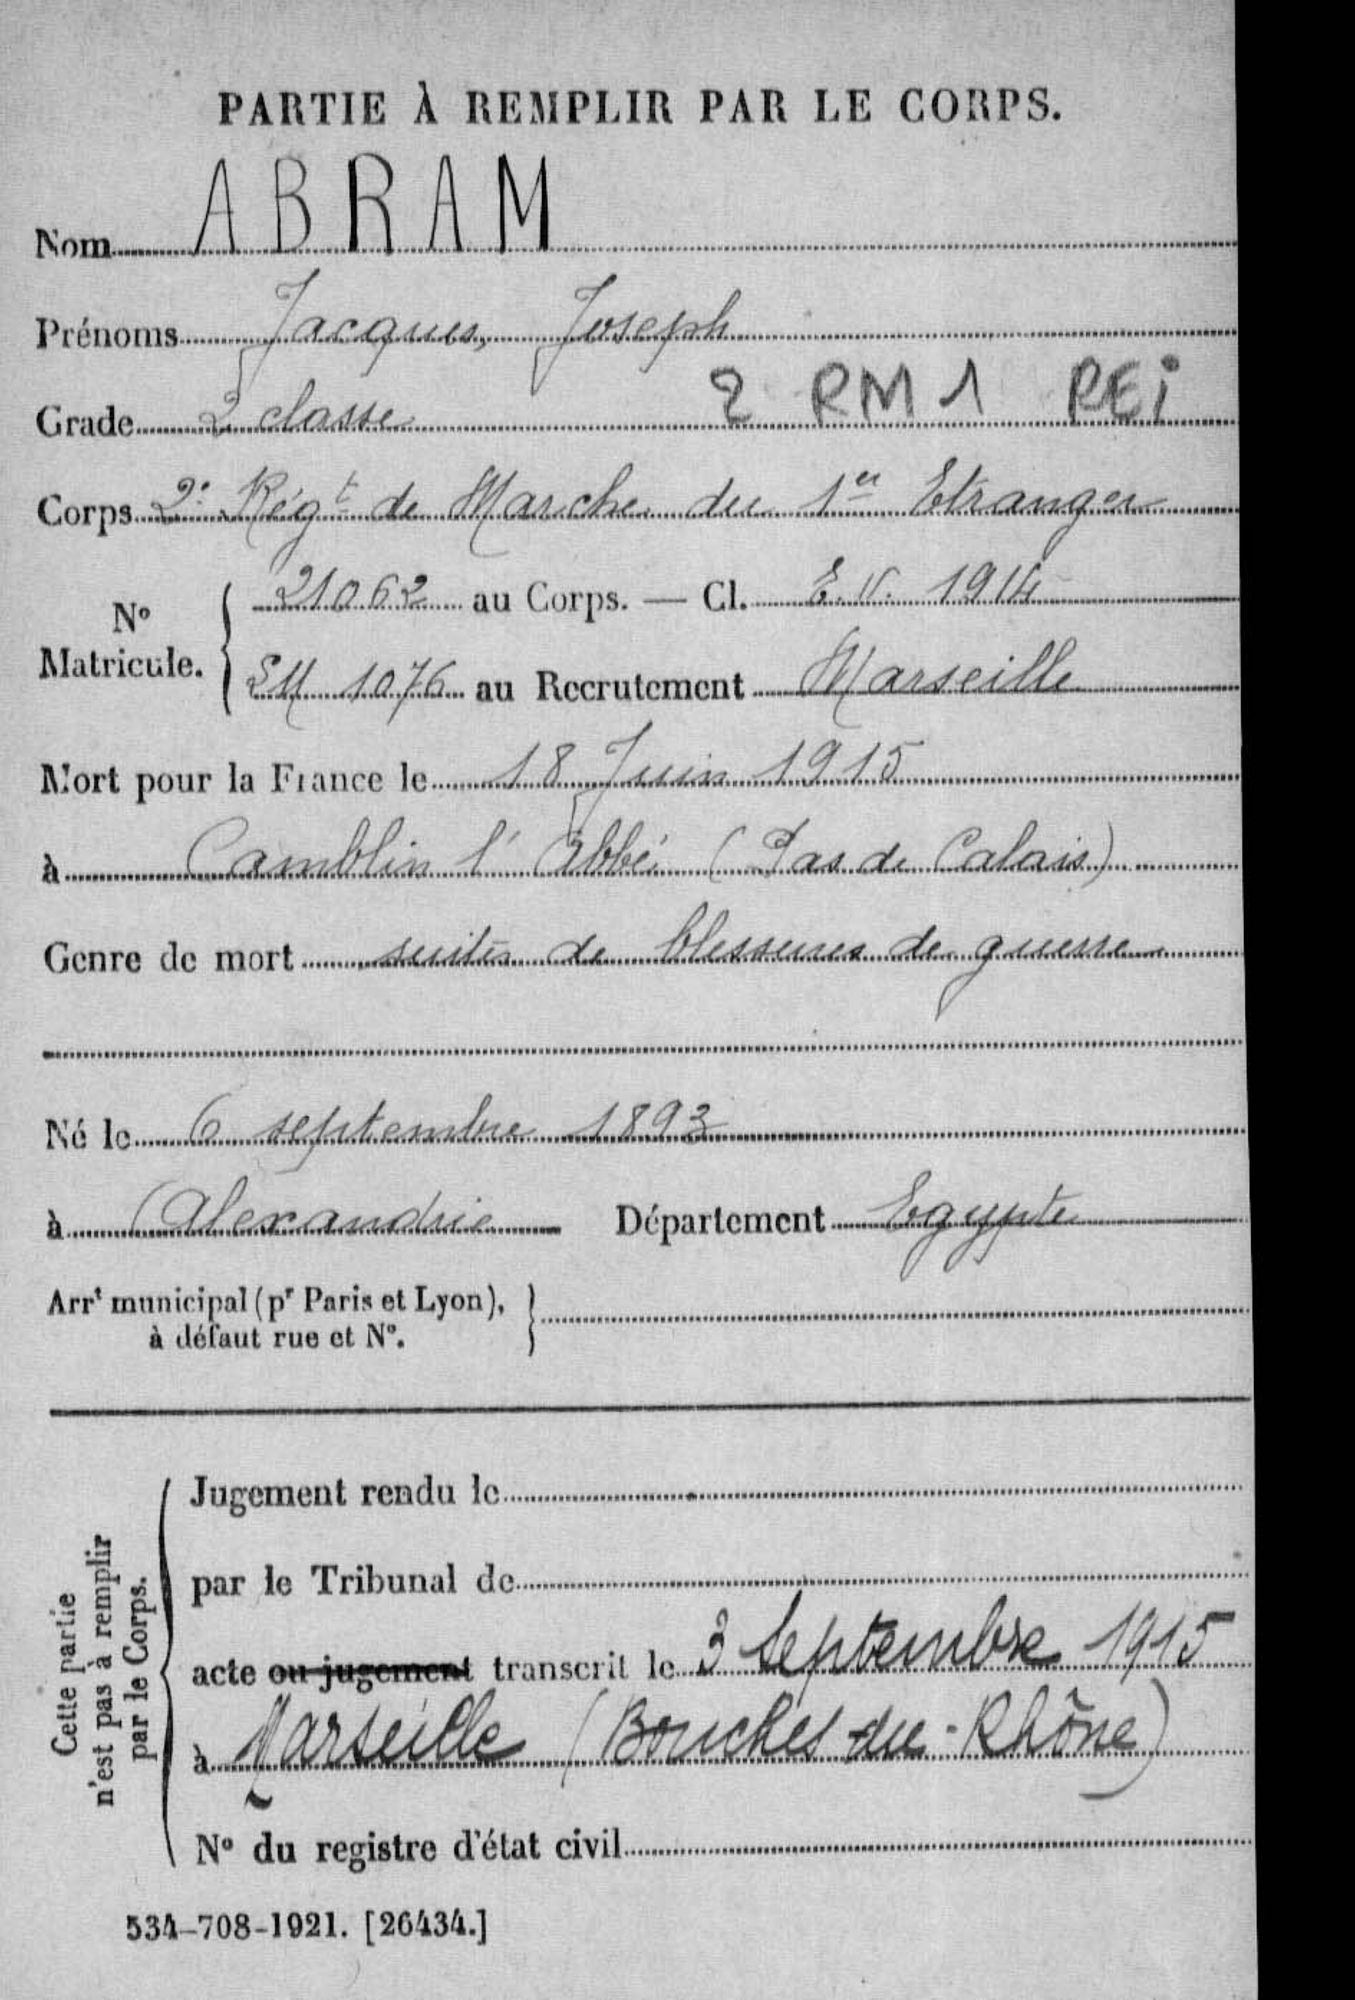 PARTIE À REMPLIR PAR LE CORPS.
Nom ABRAM
Prénoms Jacques, Joseph
2 RM 1 REi
Grade 2 classe
Corps 2e Régt de Marche du 1er Etranger
No Matricule. { 21062 au Corps. — Cl. E.V. 1914
1076 au Recrutement Marseille
Mort pour la France le 18 Juin 1915
à Camblin l'Abbé (Pas de Calais)
Genre de mort suites de blessures de guerre
Né le 6 septembre 1893
à Alexandrie Département Egypte
Arrt municipal (pr Paris et Lyon), }
à défaut rue et No.
Cette partie
n'est pas à remplir
par le Corps.
Jugement rendu le
par le Tribunal de
acte ou jugement transcrit le 3 Septembre 1915
à Marseille (Bouches-du-Rhône)
No du registre d'état civil
534-708-1921. [26434.]